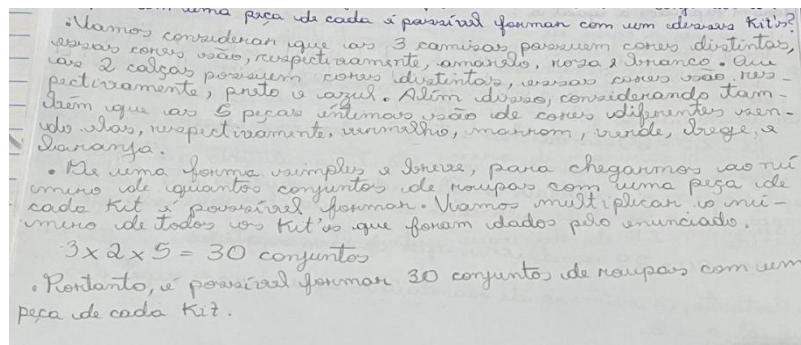 com uma peça de cada é possível formar com um desses Kit's?
• Vamos considerar que as 3 camisas possuem cores distintas,
essas cores são, respectivamente, amarelo, rosa e branco. Que
as 2 calças possuem cores distintas, essas cores são res-
pectivamente, preto e azul. Além disso, considerando tam-
bém que as 5 peças íntimas são de cores diferentes sen-
do elas, respectivamente, vermelho, marrom, verde, bege, e
laranja.
• De uma forma simples e breve, para chegarmos ao nú
mero de quantos conjuntos de roupas com uma peça de
cada Kit é possível formar. Vamos multiplicar o nú-
mero de todos os Kit's que foram dados pelo enunciado.
3 x 2 x 5 = 30 conjuntos
• Portanto, é possível formar 30 conjuntos de roupas com um
peça de cada Kit.